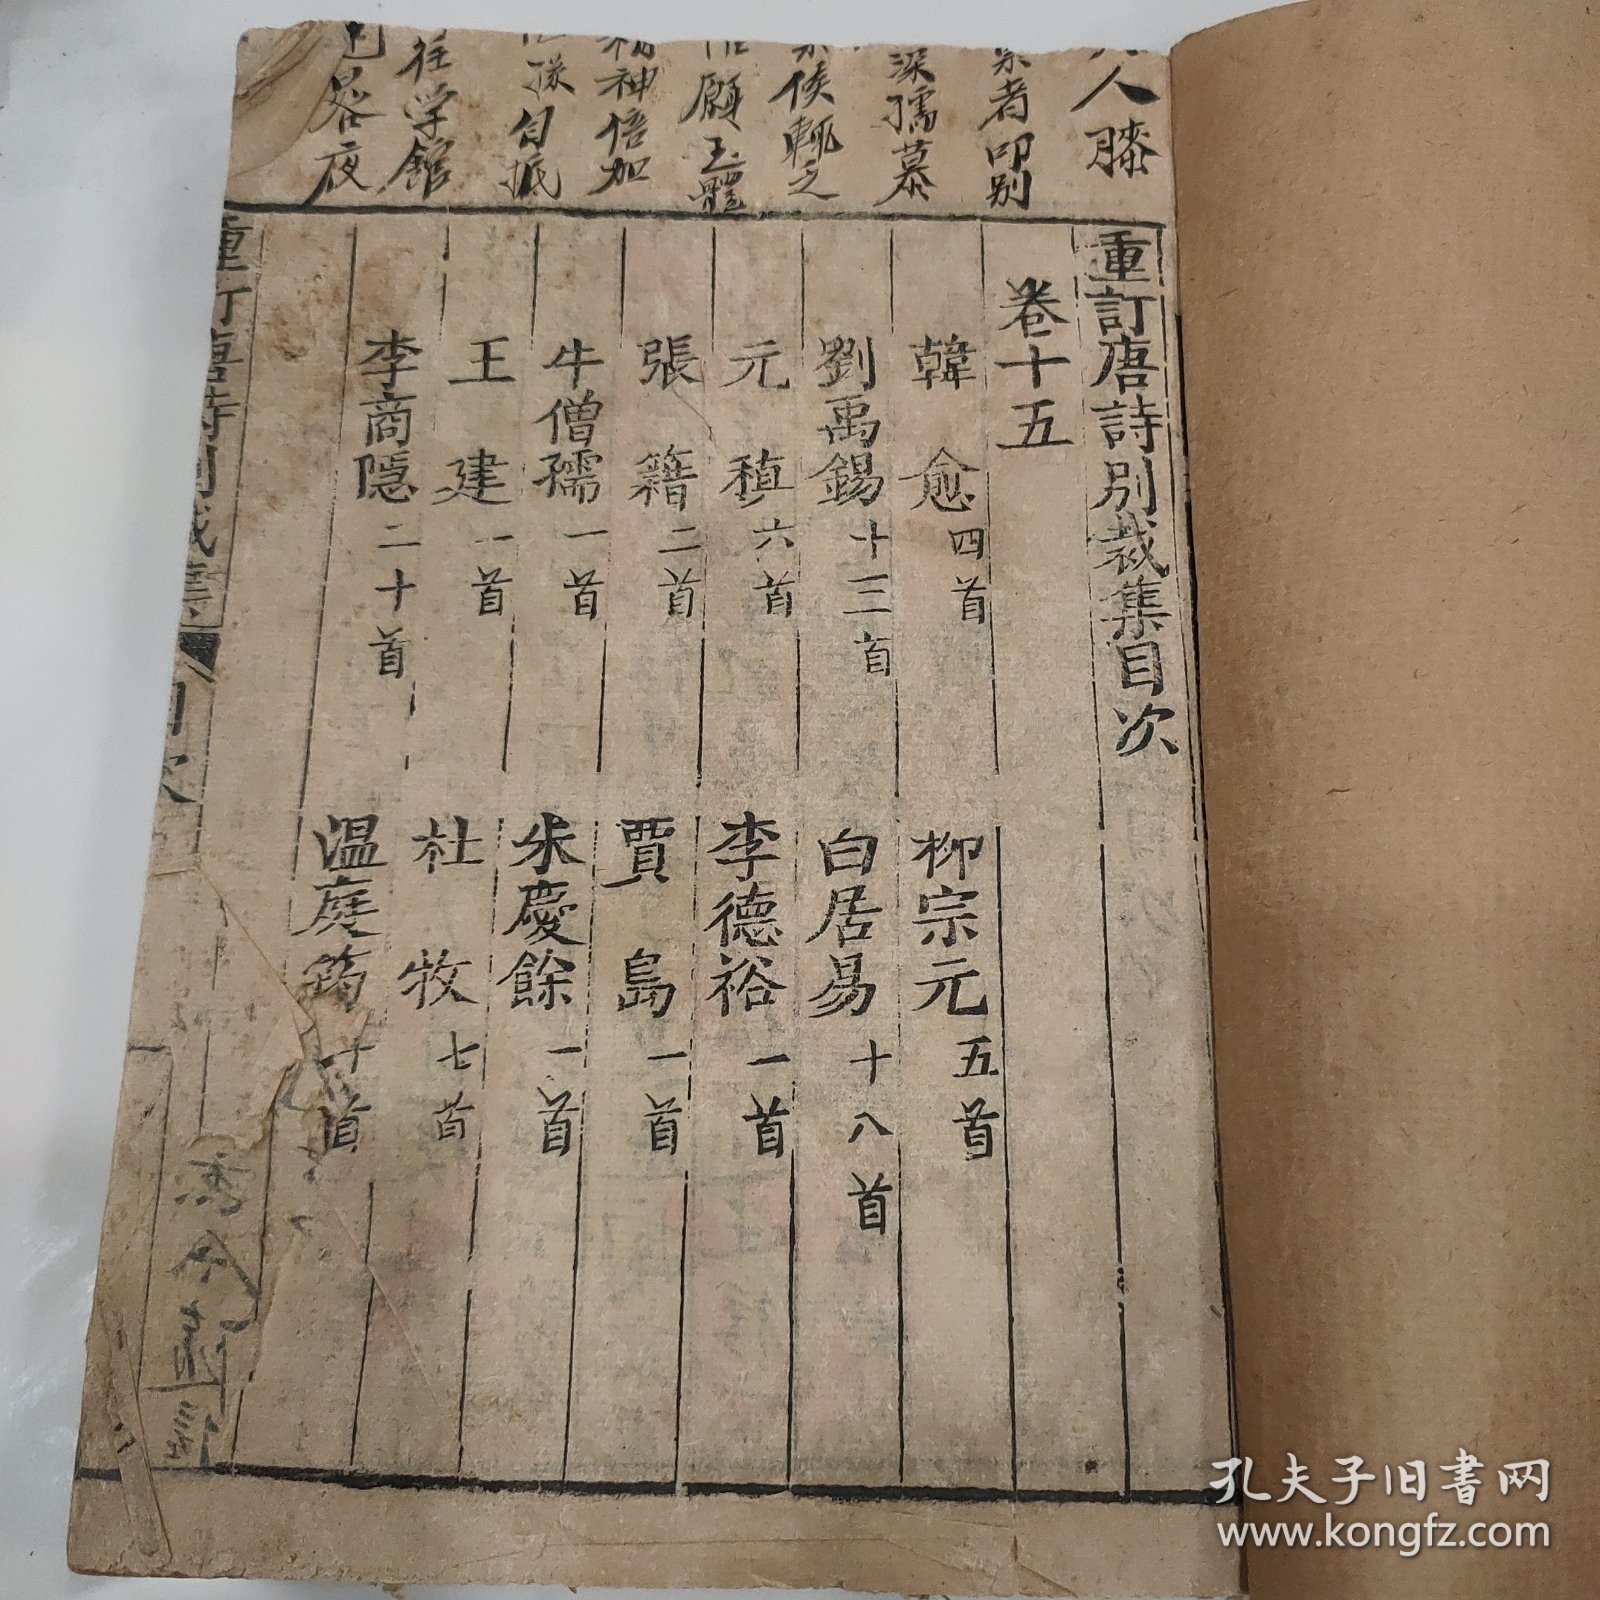 人膝
者叩别
深孺慕
侯輒之
願玉體
神倍加
自抵
往学館
畧夜
重訂唐詩別裁集目次
卷十五
韓愈四首 柳宗元五首
劉禹錫十三首 白居易十八首
元稹六首 李德裕一首
張籍二首 賈島一首
牛僧孺一首 朱慶餘一首
王建一首 杜牧七首
李商隱二十首 溫庭筠十首
重訂唐詩別裁集 目次
孔夫子旧书网
www.kongfz.com